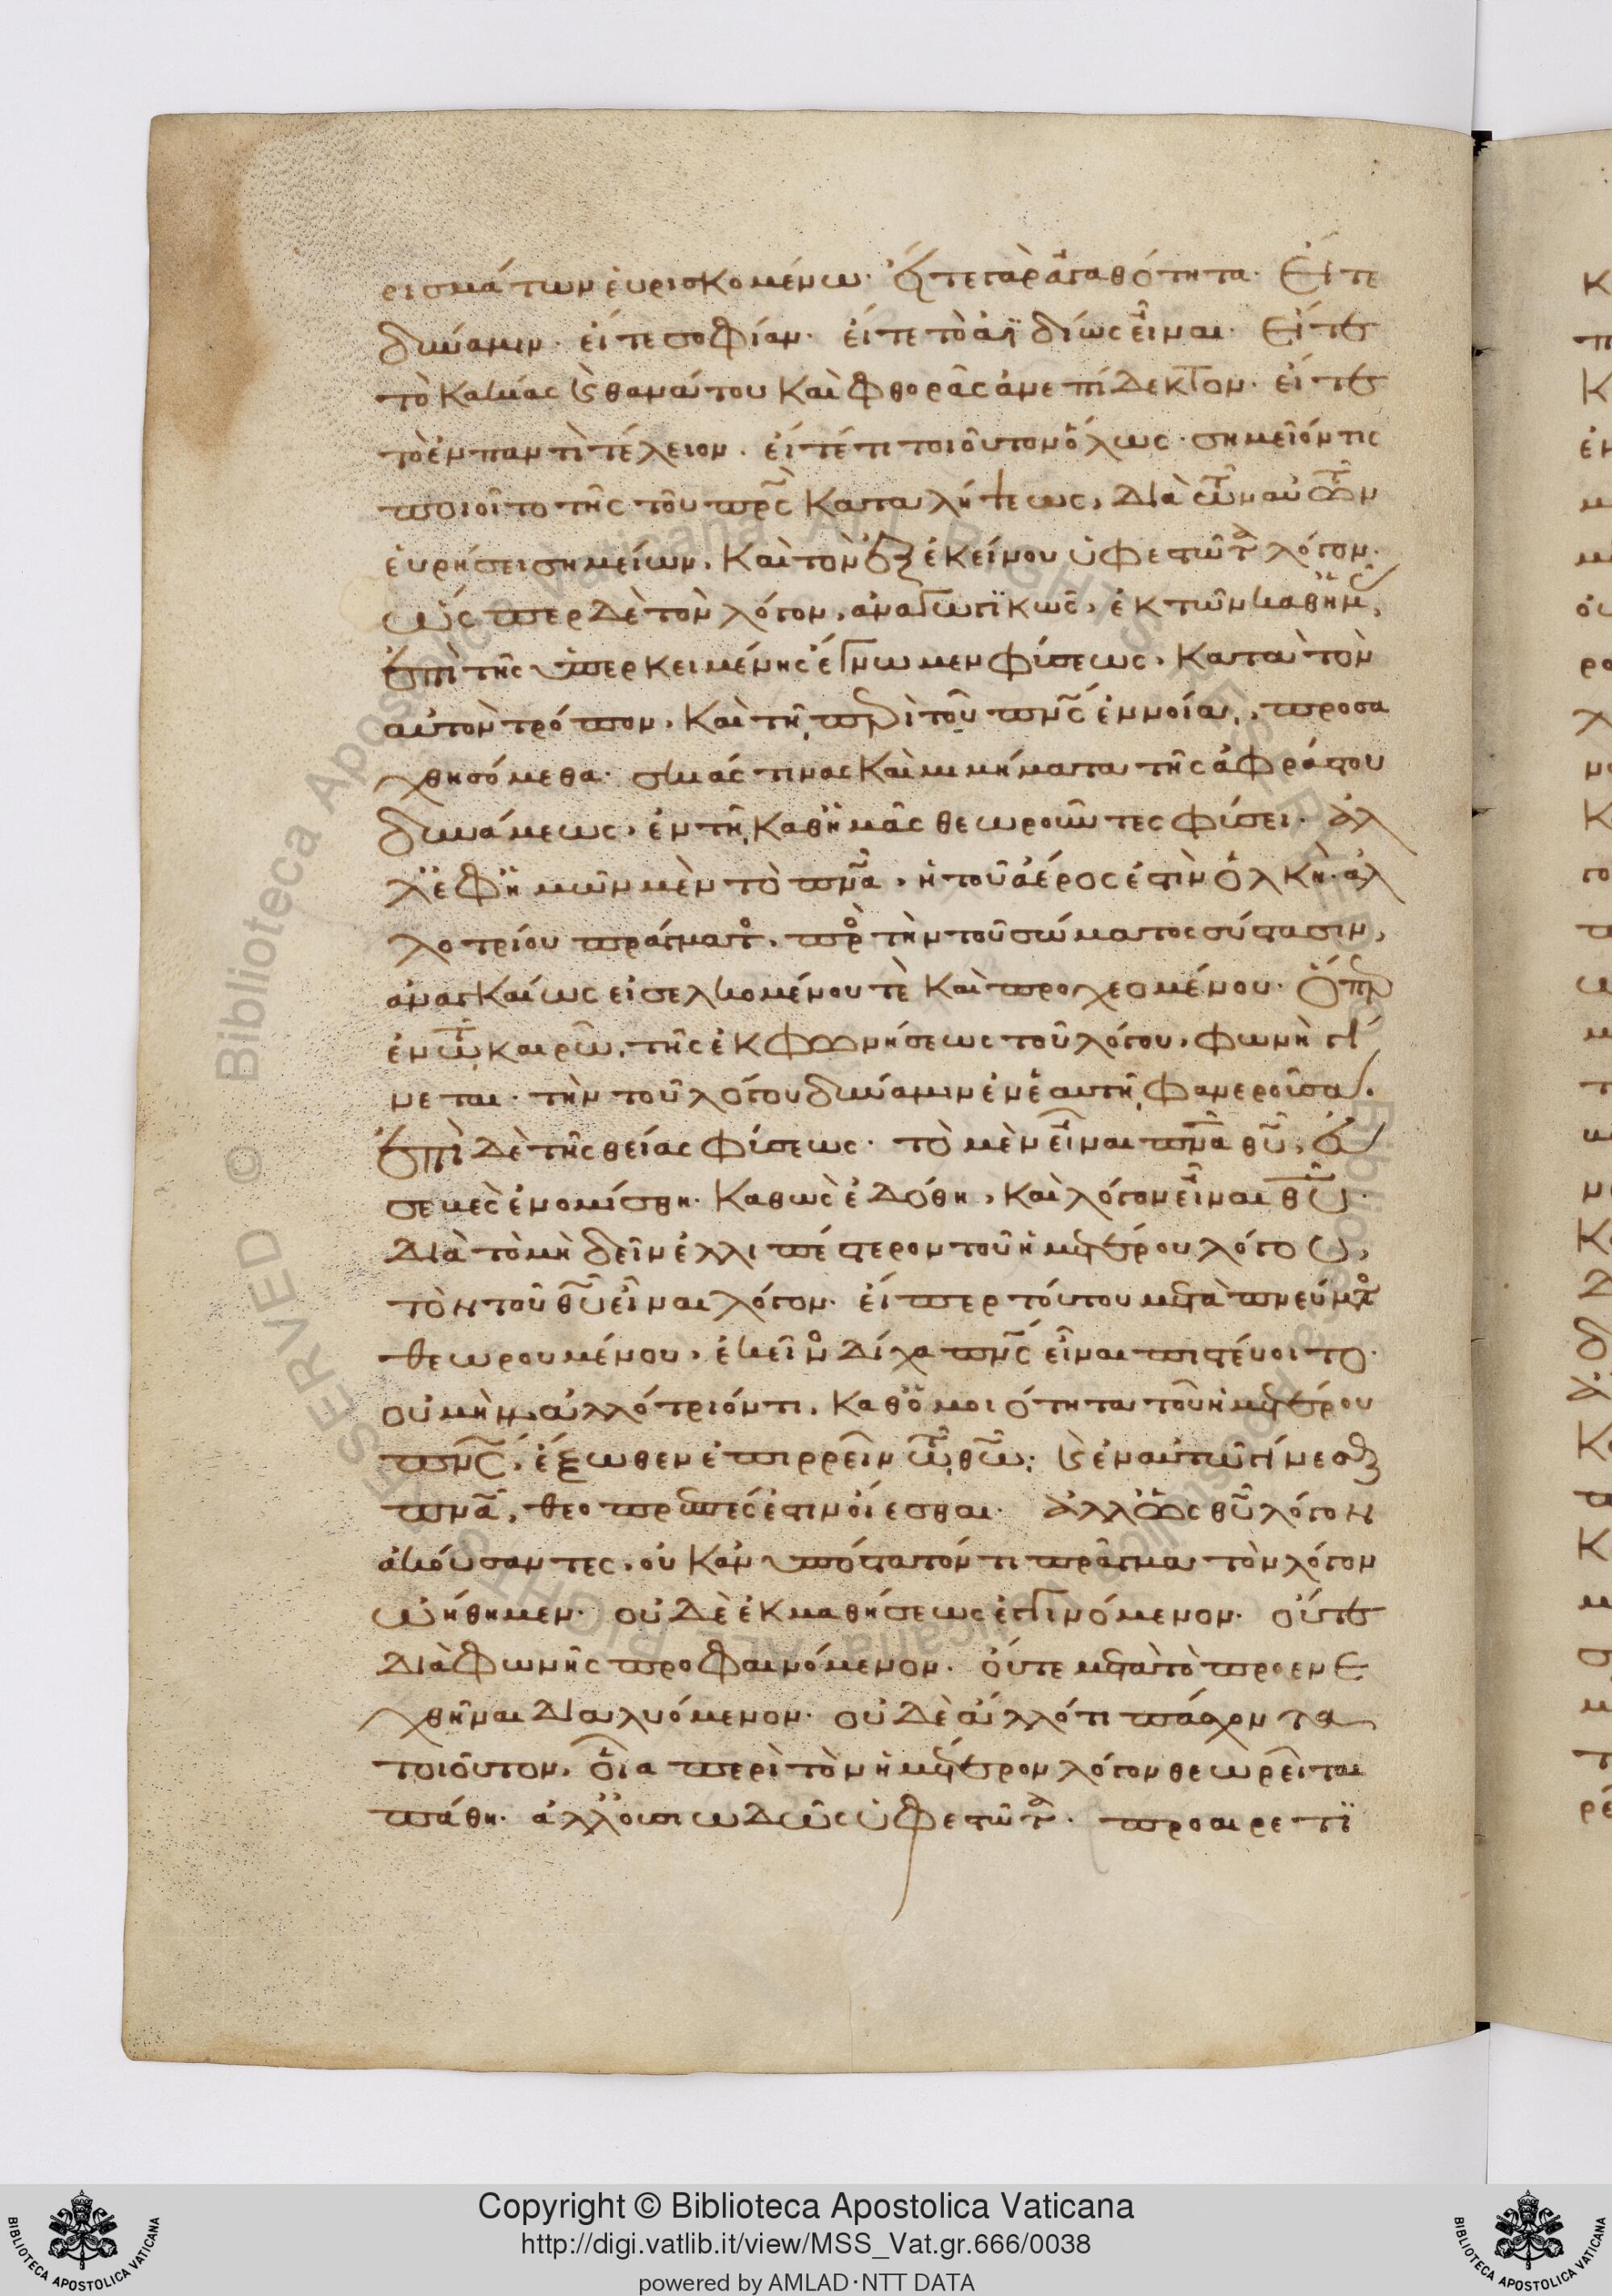 ρισμάτων ἑυρισκομένω· ἔιτε γὰρ ἀγαθότητα· Εἴτε
δύναμιν· εἴτε σοφίαν· εἴτε τὸ ἀϊδίως εἶναι· Εἴτε
τὸ κακίας καὶ θανάτου καὶ φθορᾶς ἀνεπίδεκτον· εἴτε
τὸ ἐν παντὶ τέλειον· εἴτέ τι τοιοῦτον ὅλως· σημεῖόν τις
ποιοῖτο τῆς τοῦ πρς καταλήψεως, διὰ τῶν αὐτῶν
ἑυρήσει σημείων, καὶ τὸν ἐξ ἐκείνου ὑφεστῶτα λόγον·
ὥσπερ δὲ τὸν λόγον, ἀναγωγϊκῶς, ἐκ τῶν καθ ἡμᾶς,
ἐπὶ τῆς ὑπερκειμένης ἔγνωμεν φύσεως, κατὰ τὸν
αὐτὸν τρόπον, καὶ τῆ περὶ τοῦ πνς ἐννοία, προσα
χθησόμεθα· σκιάς τινας καὶ μιμήματα τῆς ἀφράστου
δυνάμεως, ἐν τῆ καθ ἡμᾶς θεωροῦντες φύσει· ἀλ
λ ἐφ ἡμῶν μὲν τὸ πνα, ἡ τοῦ ἀέρος ἐστὶν ὁλκὴ· ἀλ
λοτρίου πράγματος, πρὸς τὴν τοῦ σώματος σύστασιν,
ἀναγκαίως εἰσελκομένου τὲ καὶ προχεομένου· ὅπερ
ἐν τῶ καιρῶ, τῆς ἐκφωνήσεως τοῦ λόγου, φωνὴ γί
νεται· τὴν τοῦ λόγου δύναμιν ἐν ἑαυτῆ φανεροῦσα·
ἐπὶ δὲ τῆς θείας φύσεως· τὸ μὲν εἶναι πνα θυ, εὐ
σεβὲς ἐνομίσθη· καθὼς ἐδόθη, καὶ λόγον εἶναι θυ·
διὰ τὸ μὴ δεῖν ἐλλιπέστερον τοῦ ἡμετέρου λόγου,
τὸν τοῦ θυ εἶναι λόγον· εἴπερ τούτου μετὰ πνεύματος
θεωρουμένου, ἐκεῖνος δίχα πνς εἶναι πιστεύοιτο·
οὐ μὴν ἀλλότριόν τι, καθ ὁμοιότητα τοῦ ἡμετέρου
πνς, ἔξωθεν ἐπιρρεῖν τῶ θω, καὶ ἐν αὐτῶ γίνεσθαι
πνα, θεοπρεπές ἐστιν οἴεσθαι· ἀλλ ὡς θυ λόγον
ἀκούσαντες, οὐκ ἀνυπόστατόν τι πρᾶγμα τὸν λόγον
ὠήθημεν· οὐδὲ ἐκ μαθήσεως ἐγγινόμενον· οὔτε
διὰ φωνῆς προφαινόμενον· οὔτε μετὰ τὸ προενε
χθῆναι διαλυόμενον· οὐδὲ ἄλλό τι πάσχοντα
τοιοῦτον, οἷα περὶ τὸν ἡμέτερον λόγον θεωρεῖται
πάθη· ἀλλ οὐσιωδῶς ὑφεστῶτα· προαιρετϊ
Copyright © Biblioteca Apostolica Vaticana
http://digi.vatlib.it/view/MSS_Vat.gr.666/0038
powered by AMLAD·NTT DATA